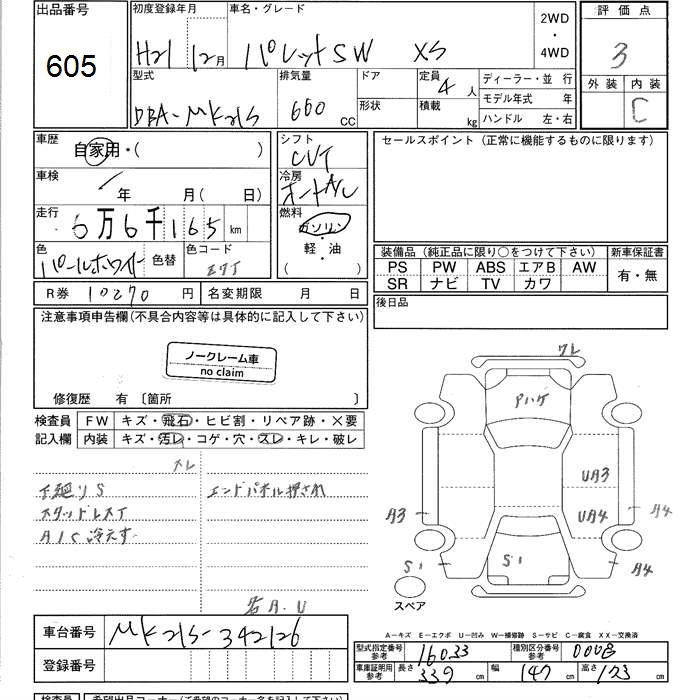 出品番号
605
初度登録年月
H21 12月
車名・グレード
パレットSW XS
2WD
・
4WD
評価点
3
外装 内装
C
型式
DBA-MK21S
排気量
660 CC
ドア
形状
定員
4人
積載
kg
ディーラー・並 行
モデル年式 年
ハンドル 左・右
車歴
自家用・( )
シフト
CVT
セールスポイント (正常に機能するものに限ります)
車検
年 月( 日)
冷房
オートA/C
走行
6万6千165 km
燃料
ガソリン
・
軽・油
( )
色
パールホワイト
色替
色コード
Z7T
装備品 (純正品に限り○をつけて下さい)
新車保証書
PS PW ABS エアB AW
SR ナビ TV カワ
有・無
R券 10270 円
名変期限 月 日
後日品
注意事項申告欄(不具合内容等は具体的に記入して下さい)
ノークレーム車
no claim
修復歴 有 〔箇所 〕
検査員
記入欄
FW キズ・飛石・ヒビ割・リペア跡・×要
内装 キズ・汚レ・コゲ・穴・スレ・キレ・破レ
スレ
下廻りS
エンドパネル押され
A/C冷えず
各A.U
ワレ
Pハゲ
UA3
UA4
A3
A4
S1
S1
A4
スペア
車台番号
MK21S-342126
登録番号
A-キズ E-エクボ U-凹み W-補修跡 S-サビ C-腐食 XX-交換済
型式指定番号
参考
16033
種別区分番号
参考
車庫証明用
参考
長さ 339 cm
幅 147 cm
高さ 173 cm
検査員
希望出品コーナー(ご希望のコーナー名をご記入下さい)